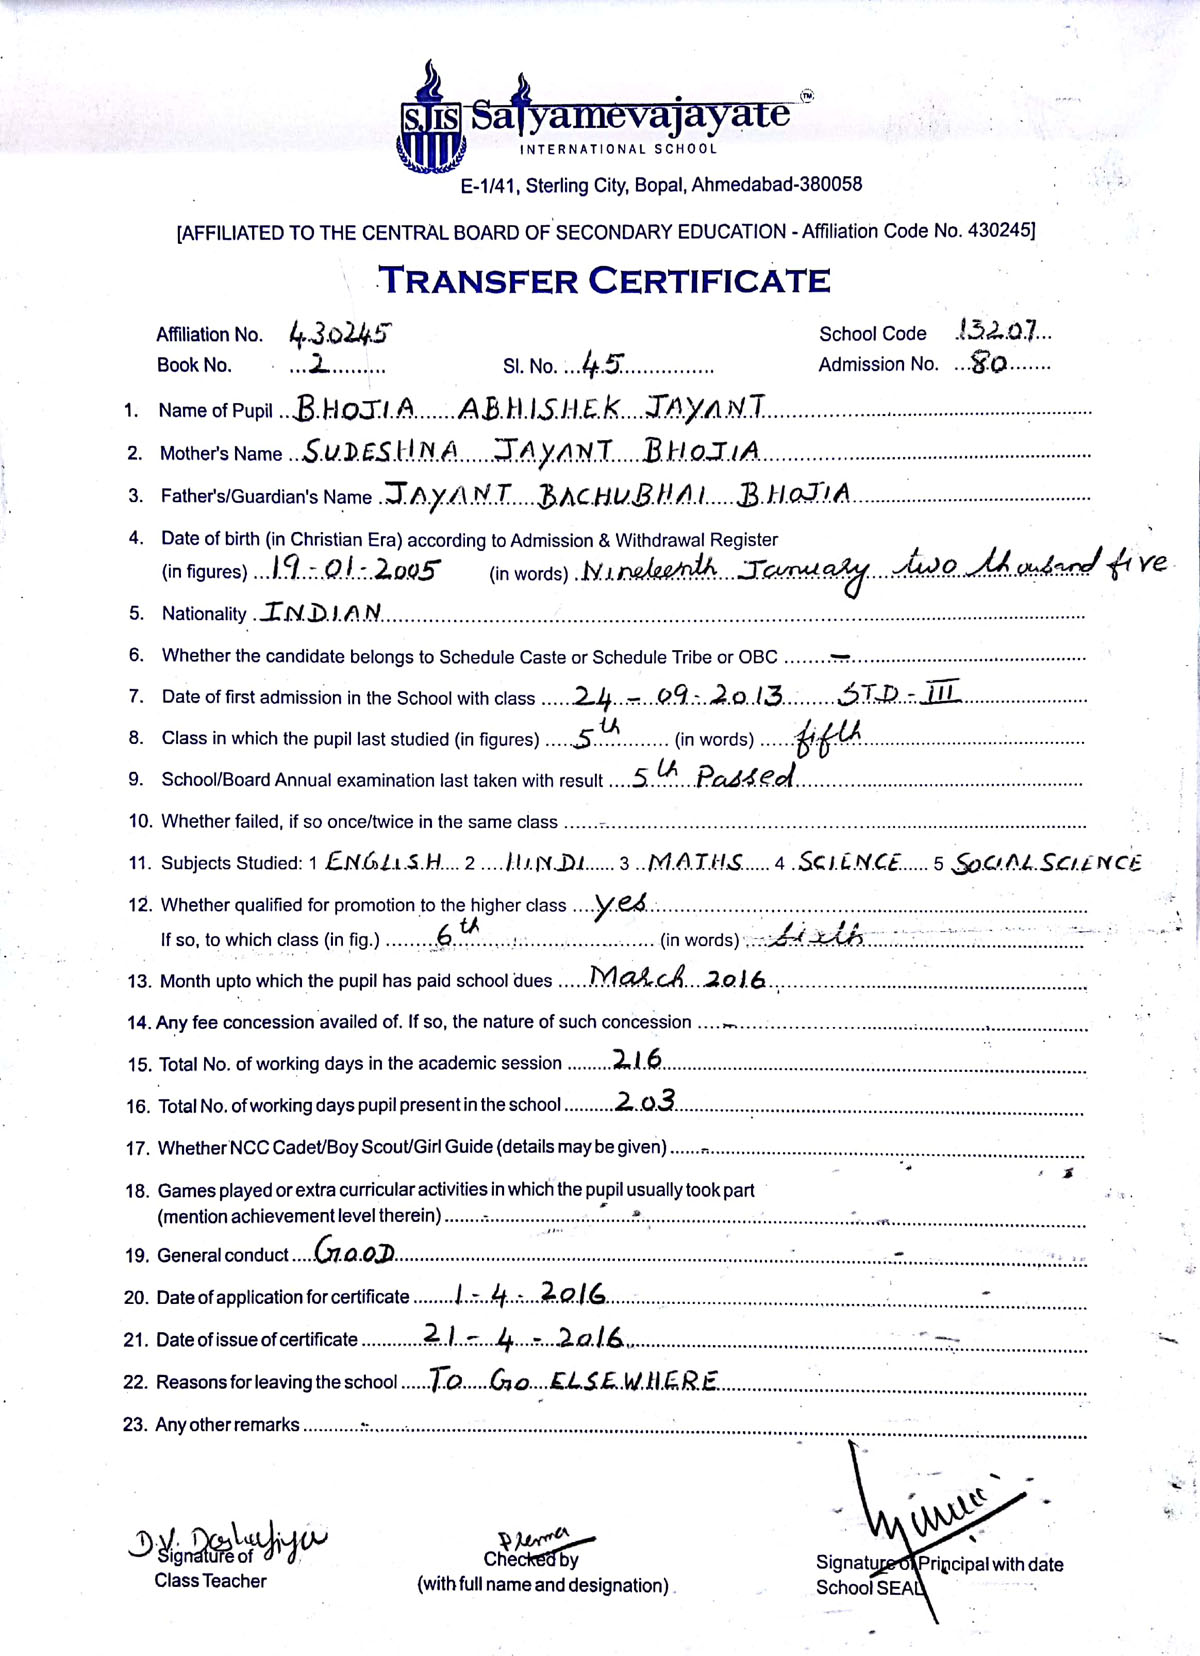 SJIS Satyamevajayate ™
INTERNATIONAL SCHOOL
E-1/41, Sterling City, Bopal, Ahmedabad-380058
[AFFILIATED TO THE CENTRAL BOARD OF SECONDARY EDUCATION - Affiliation Code No. 430245]
TRANSFER CERTIFICATE
Affiliation No. 430245 School Code 13207
Book No. 2 Sl. No. 45 Admission No. 80
1. Name of Pupil BHOJIA ABHISHEK JAYANT
2. Mother's Name SUDESHNA JAYANT BHOJIA
3. Father's/Guardian's Name JAYANT BACHUBHAI BHOJIA
4. Date of birth (in Christian Era) according to Admission & Withdrawal Register
(in figures) 19-01-2005 (in words) Nineteenth January two thousand five
5. Nationality INDIAN
6. Whether the candidate belongs to Schedule Caste or Schedule Tribe or OBC -
7. Date of first admission in the School with class 24-09-2013 STD-III
8. Class in which the pupil last studied (in figures) 5th (in words) fifth
9. School/Board Annual examination last taken with result 5th Passed
10. Whether failed, if so once/twice in the same class -
11. Subjects Studied: 1 ENGLISH 2 HINDI 3 MATHS 4 SCIENCE 5 SOCIAL SCIENCE
12. Whether qualified for promotion to the higher class yes
If so, to which class (in fig.) 6th (in words) sixth
13. Month upto which the pupil has paid school dues March 2016
14. Any fee concession availed of. If so, the nature of such concession -
15. Total No. of working days in the academic session 216
16. Total No. of working days pupil present in the school 203
17. Whether NCC Cadet/Boy Scout/Girl Guide (details may be given) -
18. Games played or extra curricular activities in which the pupil usually took part
(mention achievement level therein) -
19. General conduct GOOD
20. Date of application for certificate 1-4-2016
21. Date of issue of certificate 21-4-2016
22. Reasons for leaving the school TO GO ELSEWHERE
23. Any other remarks -
D.V.
Signature of Checked by Signature of Principal with date
Class Teacher (with full name and designation) School SEAL